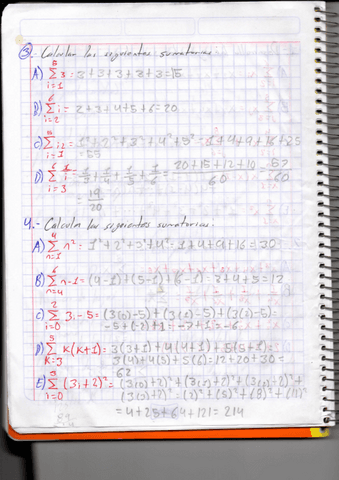 3.- Calcular las siguientes sumatorias:
A) 5∑i=1 3 = 3+3+3+3+3 = 15
B) 6∑i=2 i = 2+3+4+5+6 = 20
C) 5∑i=1 i2 = 1²+2²+3²+4²+5² = 1+4+9+16+25
= 55
D) 6∑i=3 1/i = 1/3+1/4+1/5+1/6 = 20+15+12+10/60 = 57/60
= 19/20
4.- Calcula las siguientes sumatorias:
A) 4∑n=1 n² = 1²+2²+3²+4² = 1+4+9+16 = 30
B) 6∑n=4 n-1 = (4-1)+(5-1)+(6-1) = 3+4+5 = 12
C) 2∑i=0 3i-5 = (3(0)-5)+(3(1)-5)+(3(2)-5) =
-5+(-2)+1 = -7+1 = -6
D) 5∑k=3 k(k+1) = 3(3+1)+4(4+1)+5(5+1) =
3(4)+4(5)+5(6) = 12+20+30 =
62
E) 3∑i=0 (3i+2)² = (3(0)+2)²+(3(1)+2)²+(3(2)+2)²+
(3(3)+2)² = (2)²+(5)²+(8)²+(11)²
= 4+25+64+121 = 214